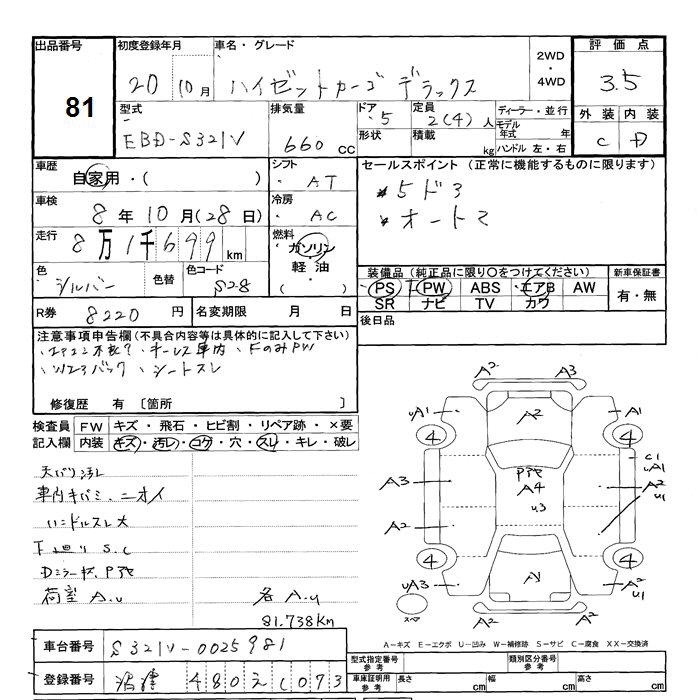 出品番号
81
初度登録年月
20 10月
車名・グレード
ハイゼットカーゴ デラックス
2WD
・
4WD
評価点
3.5
外装 内装
C D
型式
EBD-S321V
排気量
660 cc
ドア
・5
形状
定員
2(4)人
積載
kg
ディーラー・並行
モデル
年式 年
ハンドル 左・右
車歴
自家用・( )
シフト
・ AT
車検
8年10月(28日)
冷房
・ AC
走行
8万1千699km
燃料
ガソリン
軽油
( )
色
シルバー
色替
色コード
S28
R券 8220円
名変期限 月 日
セールスポイント (正常に機能するものに限ります)
* 5ドア
* オートマ
装備品(純正品に限り〇をつけてください)
PS PW ABS エアB AW
SR ナビ TV カワ
新車保証書
有・無
後日品
注意事項申告欄(不具合内容等は具体的に記入して下さい)
・キーレス車内 ・FのみPW
・シートスレ
修復歴 有 [箇所 ]
検査員
記入欄
FW キズ・飛石・ヒビ割・リペア跡・×要
内装 キズ・汚レ・コゲ・穴・スレ・キレ・破レ
天バリ汚レ
車内キバミ、ニオイ
ハンドルスレ大
下廻り S.C
荷室 A.U
各 A.U
81.738Km
車台番号 S321V-0025981
登録番号 沼津 480 え 1073
A2 A3
A2
UA1 A1
4 4
C1
UA1
A3 A2
U1
A4
U3
A2
4 4
A1
UA3 A2
U1
スペア
A2 A2
A-キズ E-エクボ U-凹み W-補修跡 S-サビ C-腐食 XX-交換済
型式指定番号
参考
類別区分番号
参考
車庫証明用
参考
長さ cm
幅 cm
高さ cm